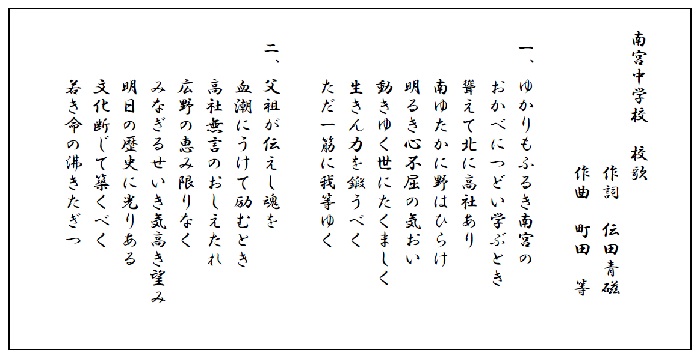 南宮中学校 校歌
作詞 伝田青磁
作曲 町田 等
一、ゆかりもふるき南宮の
おかべにつどい学ぶとき
聳えて北に高社あり
南ゆたかに野はひらけ
明るき心不屈の気おい
動きゆく世にたくましく
生きん力を鍛うべく
ただ一筋に我等ゆく
二、父祖が伝えし魂を
血潮にうけて励むとき
高社無言のおしえたれ
広野の恵み限りなく
みなぎるせいき気高き望み
明日の歴史に光りある
文化断じて築くべく
若き命の沸きたぎつ